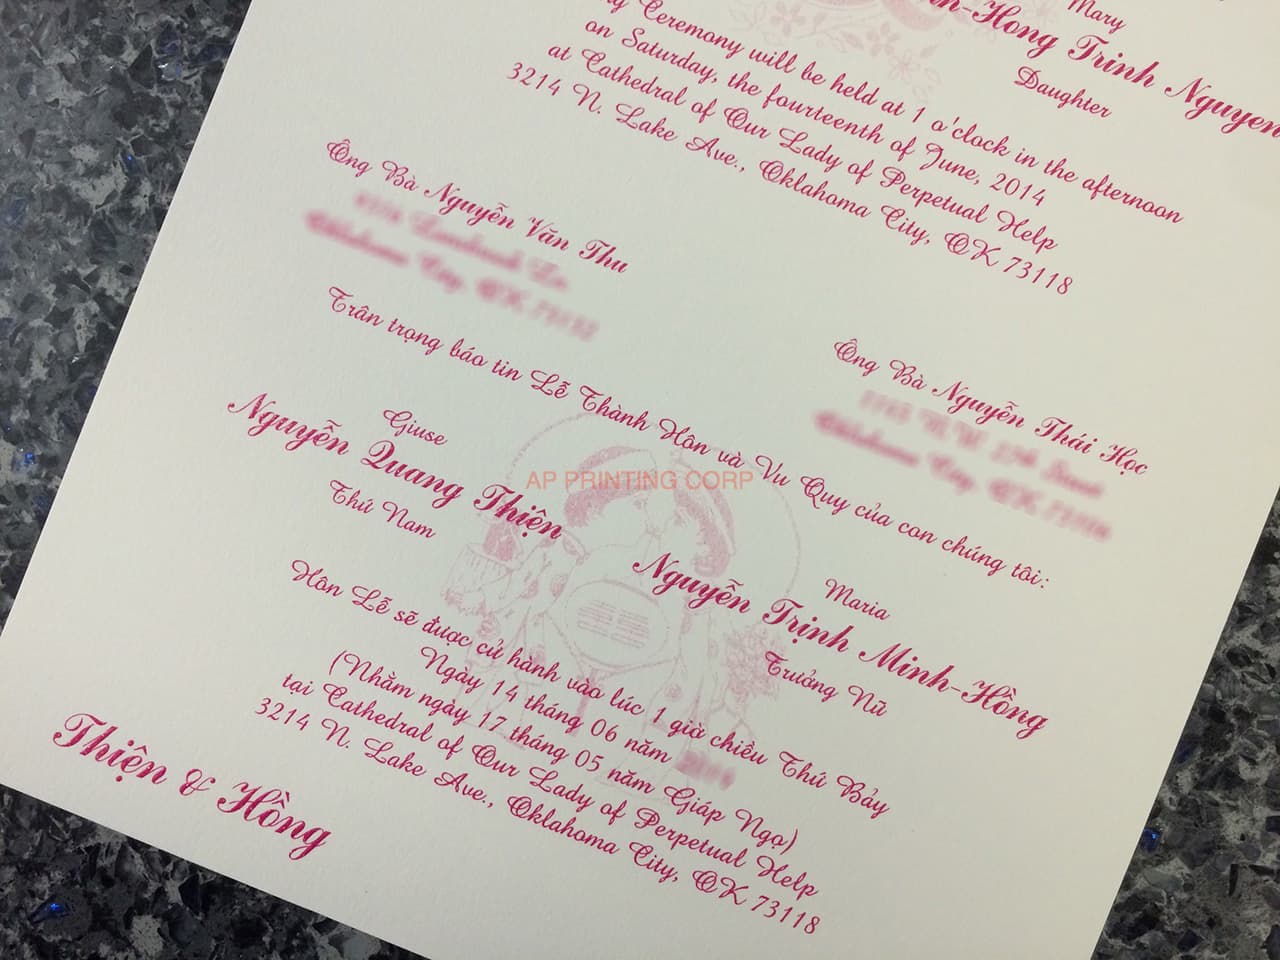 Mary
-Hong Trinh Nguyen
Daughter
Ceremony will be held at 1 o'clock in the afternoon
on Saturday, the fourteenth of June, 2014
at Cathedral of Our Lady of Perpetual Help
3214 N. Lake Ave., Oklahoma City, OK 73118
Ông Bà Nguyễn Văn Thu
Ông Bà Nguyễn Thái Học
Trân trọng báo tin Lễ Thành Hôn và Vu Quy của con chúng tôi:
Giuse
Nguyễn Quang Thiện
Thứ Nam
Maria
Nguyễn Trịnh Minh-Hồng
Trưởng Nữ
AP PRINTING CORP
Hôn Lễ sẽ được cử hành vào lúc 1 giờ chiều Thứ Bảy
Ngày 14 tháng 06 năm
(Nhằm ngày 17 tháng 05 năm Giáp Ngọ)
tại Cathedral of Our Lady of Perpetual Help
3214 N. Lake Ave., Oklahoma City, OK 73118
Thiện & Hồng